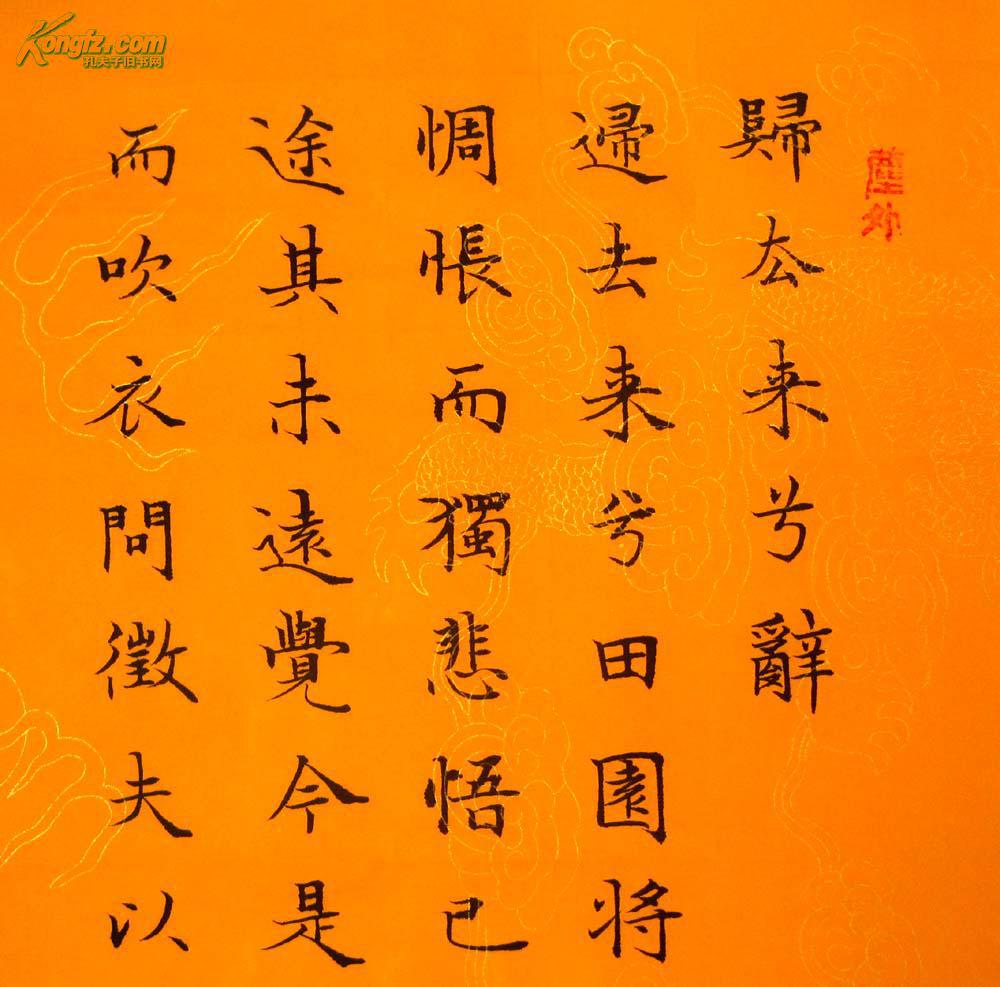 塵外
歸去来兮辭
歸去来兮田園将
惆悵而獨悲悟已
途其未遠覺今是
而吹衣問徵夫以
Kongfz.com
孔夫子旧书网